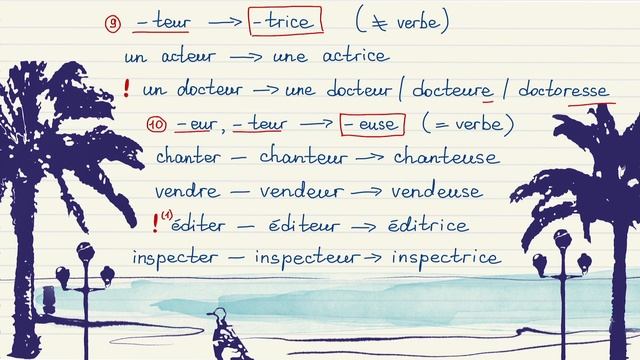 ⑨ -teur → -trice (≠ verbe)
un acteur → une actrice
! un docteur → une docteur / docteure / doctoresse
⑩ -eur, -teur → -euse (= verbe)
chanter — chanteur → chanteuse
vendre — vendeur → vendeuse
!⁽¹⁾ éditer — éditeur → éditrice
inspecter — inspecteur → inspectrice